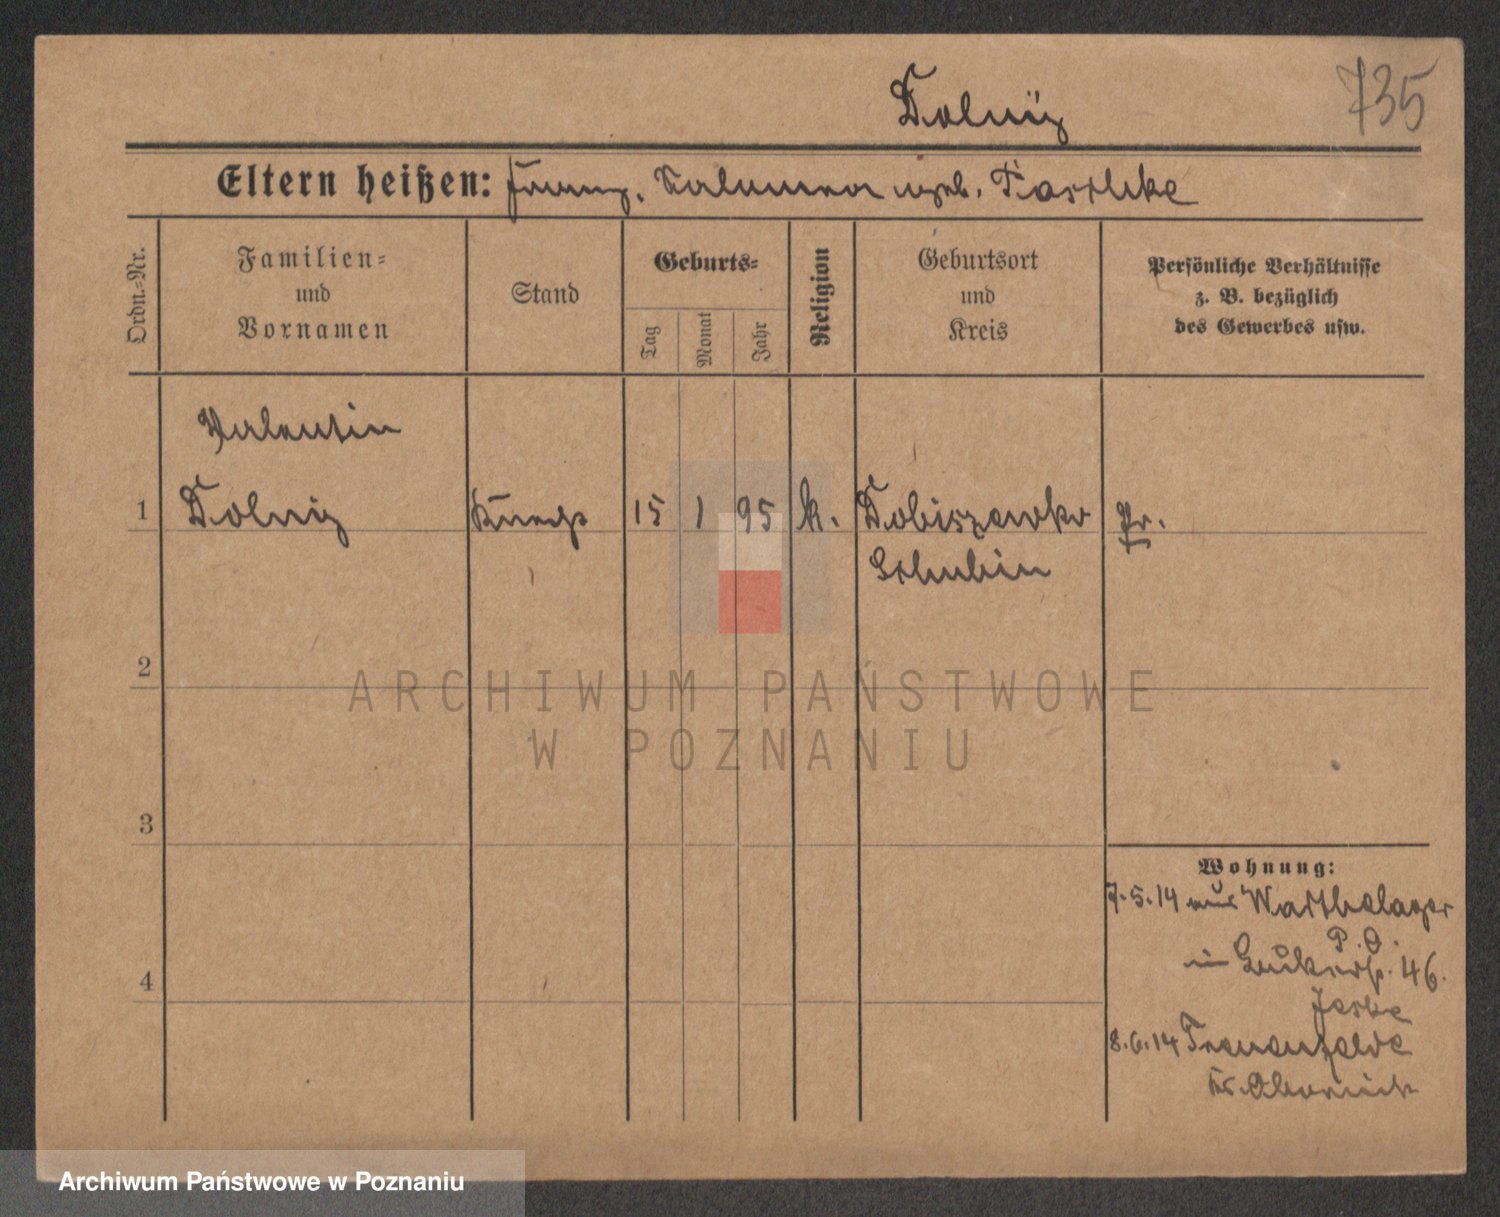 Dolniz
735
Eltern heißen: Franz, Salomea geb. Piaschke
Ordn.-Nr.
Familien-
und
Vornamen
Stand
Geburts-
Tag
Monat
Jahr
Religion
Geburtsort
und
Kreis
Persönliche Verhältnisse
z. B. bezüglich
des Gewerbes usw.
Valentin
1 Dolniz 15 1 95 k. Dobiszewko Pr.
Schubin
2
ARCHIWUM PAŃSTWOWE
W POZNANIU
3
4
Wohnung:
7.5.14 aus Warthelager
P. O.
in 46.
Jeske
8.6.14 Treuenfelde
Kr. Obornick
Archiwum Państwowe w Poznaniu